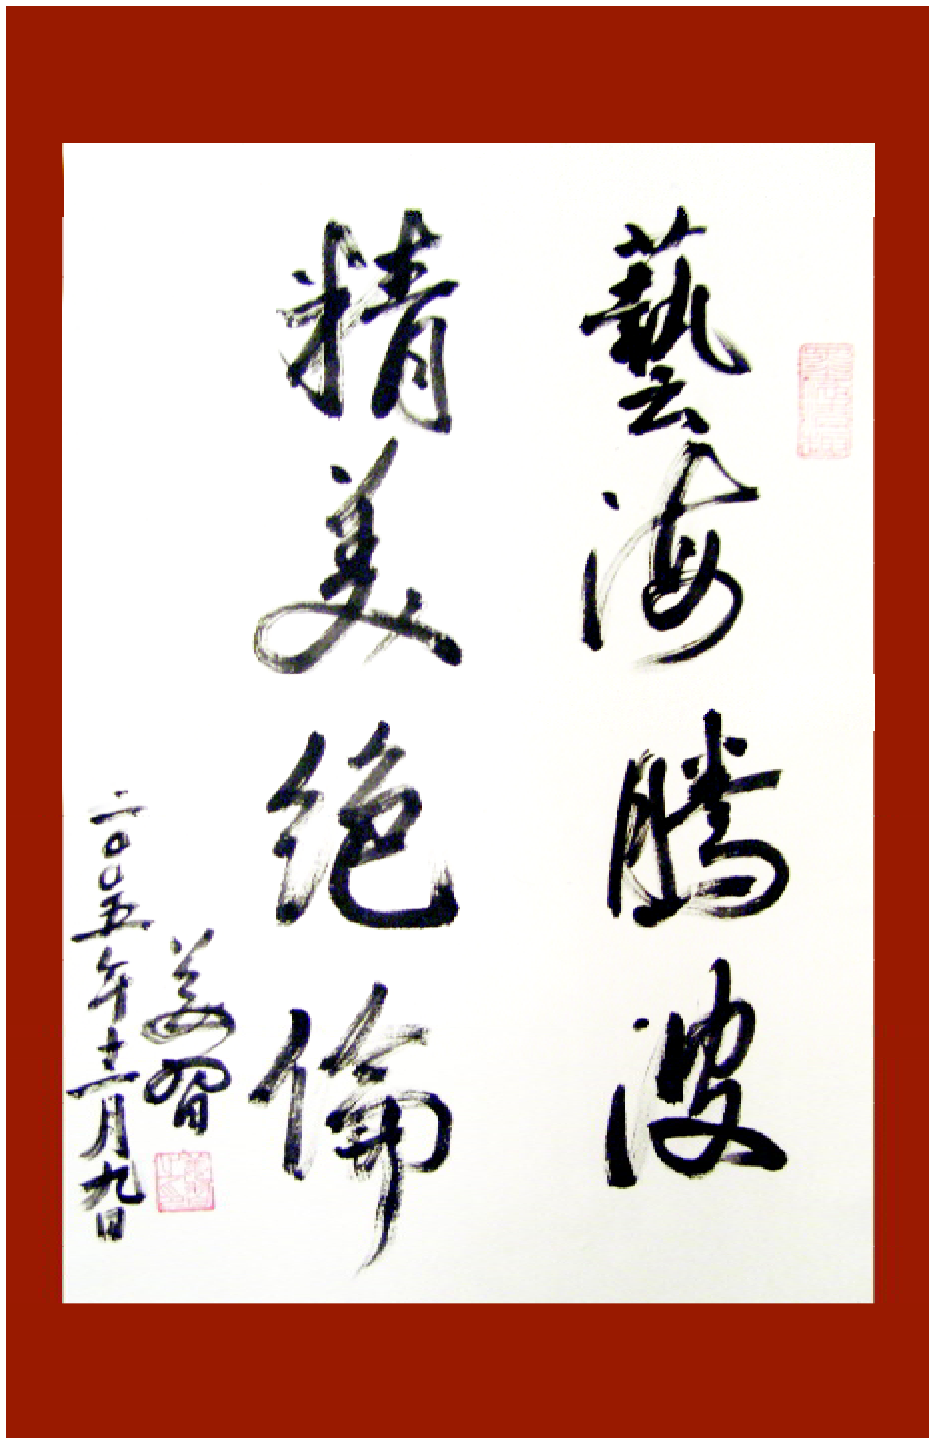 藝海騰波
精美绝倫
姜習
二00五年十二月九日